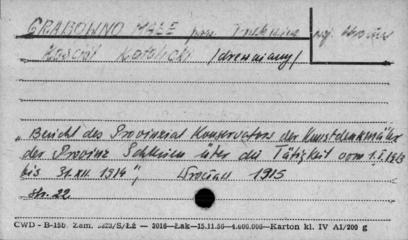 GRABOWNO MAŁE pow. woj. Wrocław
Kościół Katolicki /drewniany/
"Bericht des Provinzial Konservators der Kunstdenkmäler
der Provinz Schlesien über die Tätigkeit vom 1.I.1913
bis 31.XII. 1914", Wrocław 1915
Str. 22
CWD - B-150. Zam. S/Łż — 3016—Łak—15.11.56 — 4.600.000—Karton kl. IV A1/200 g